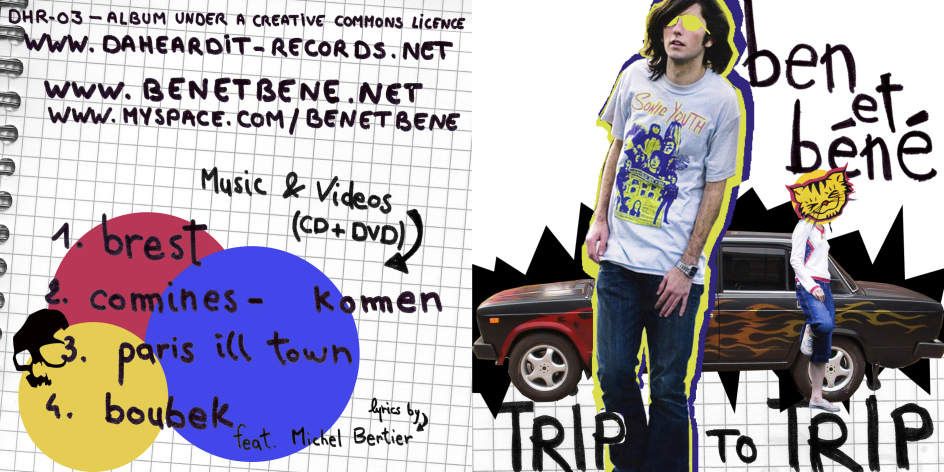 DHR-03 – ALBUM UNDER A CREATIVE COMMONS LICENCE
WWW.DAHEARDIT-RECORDS.NET
WWW.BENETBENE.NET
WWW.MYSPACE.COM/BENETBENE
Music & Videos
(CD+DVD)
1. brest
2. comines - komen
3. paris ill town
4. boubek
lyrics by
feat. Michel Bertier
ben
et
béné
SONIC YOUTH
TRIP TO TRIP